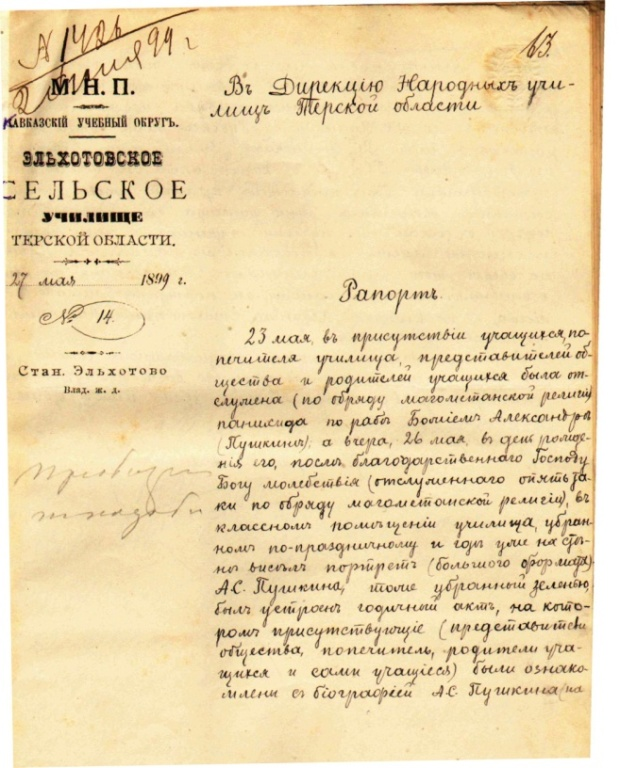 № 1486
2 июня 99 г
63.
М. Н. П.
КАВКАЗСКІЙ УЧЕБНЫЙ ОКРУГЪ.
ЭЛЬХОТОВСКОЕ
СЕЛЬСКОЕ
УЧИЛИЩЕ
ТЕРСКОЙ ОБЛАСТИ.
27 мая 1899 г.
№ 14.
Стан. Эльхотово
Влад. ж. д.
Въ Дирекцію Народныхъ учи-
лищъ Терской области
Рапортъ.
23 мая, въ присутствіи учащихся, по-
печителя училища, представителей об-
щества и родителей учащихся была от-
служена (по обряду магометанской религіи)
панихида по рабѣ Божіемъ Александрѣ
(Пушкинѣ); а вчера, 26 мая, въ день рожде-
нія его, послѣ благодарственнаго Господу
Богу молебствія (отслуженнаго опять та-
ки по обряду магометанской религіи), въ
классномъ помѣщеніи училища, убран-
номъ по-праздничному и гдѣ уже на стѣ-
нѣ висѣлъ портретъ (большого формата)
А.С. Пушкина, тоже убранный зеленью,
былъ устроенъ годичный актъ, на кото-
ромъ присутствующіе (представители
общества, попечитель, родители уча-
щихся и сами учащіеся) были ознако-
млены съ біографіей А.С. Пушкина (на